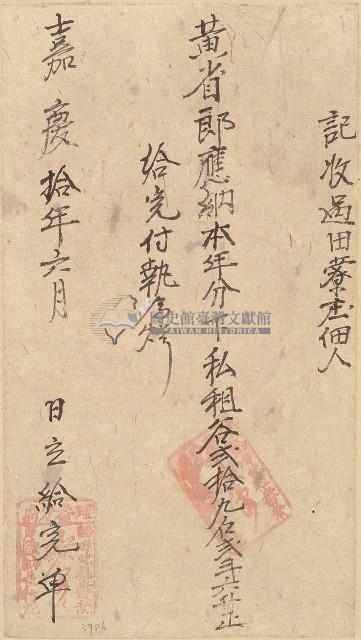 記收過田藔庄佃人
黃省郎應納本年分 私租谷貳拾九石貳斗六升正
給完付執為炤
嘉慶拾年六月 日立給完单
國史館臺灣文獻館
TAIWAN HISTORICA
3786